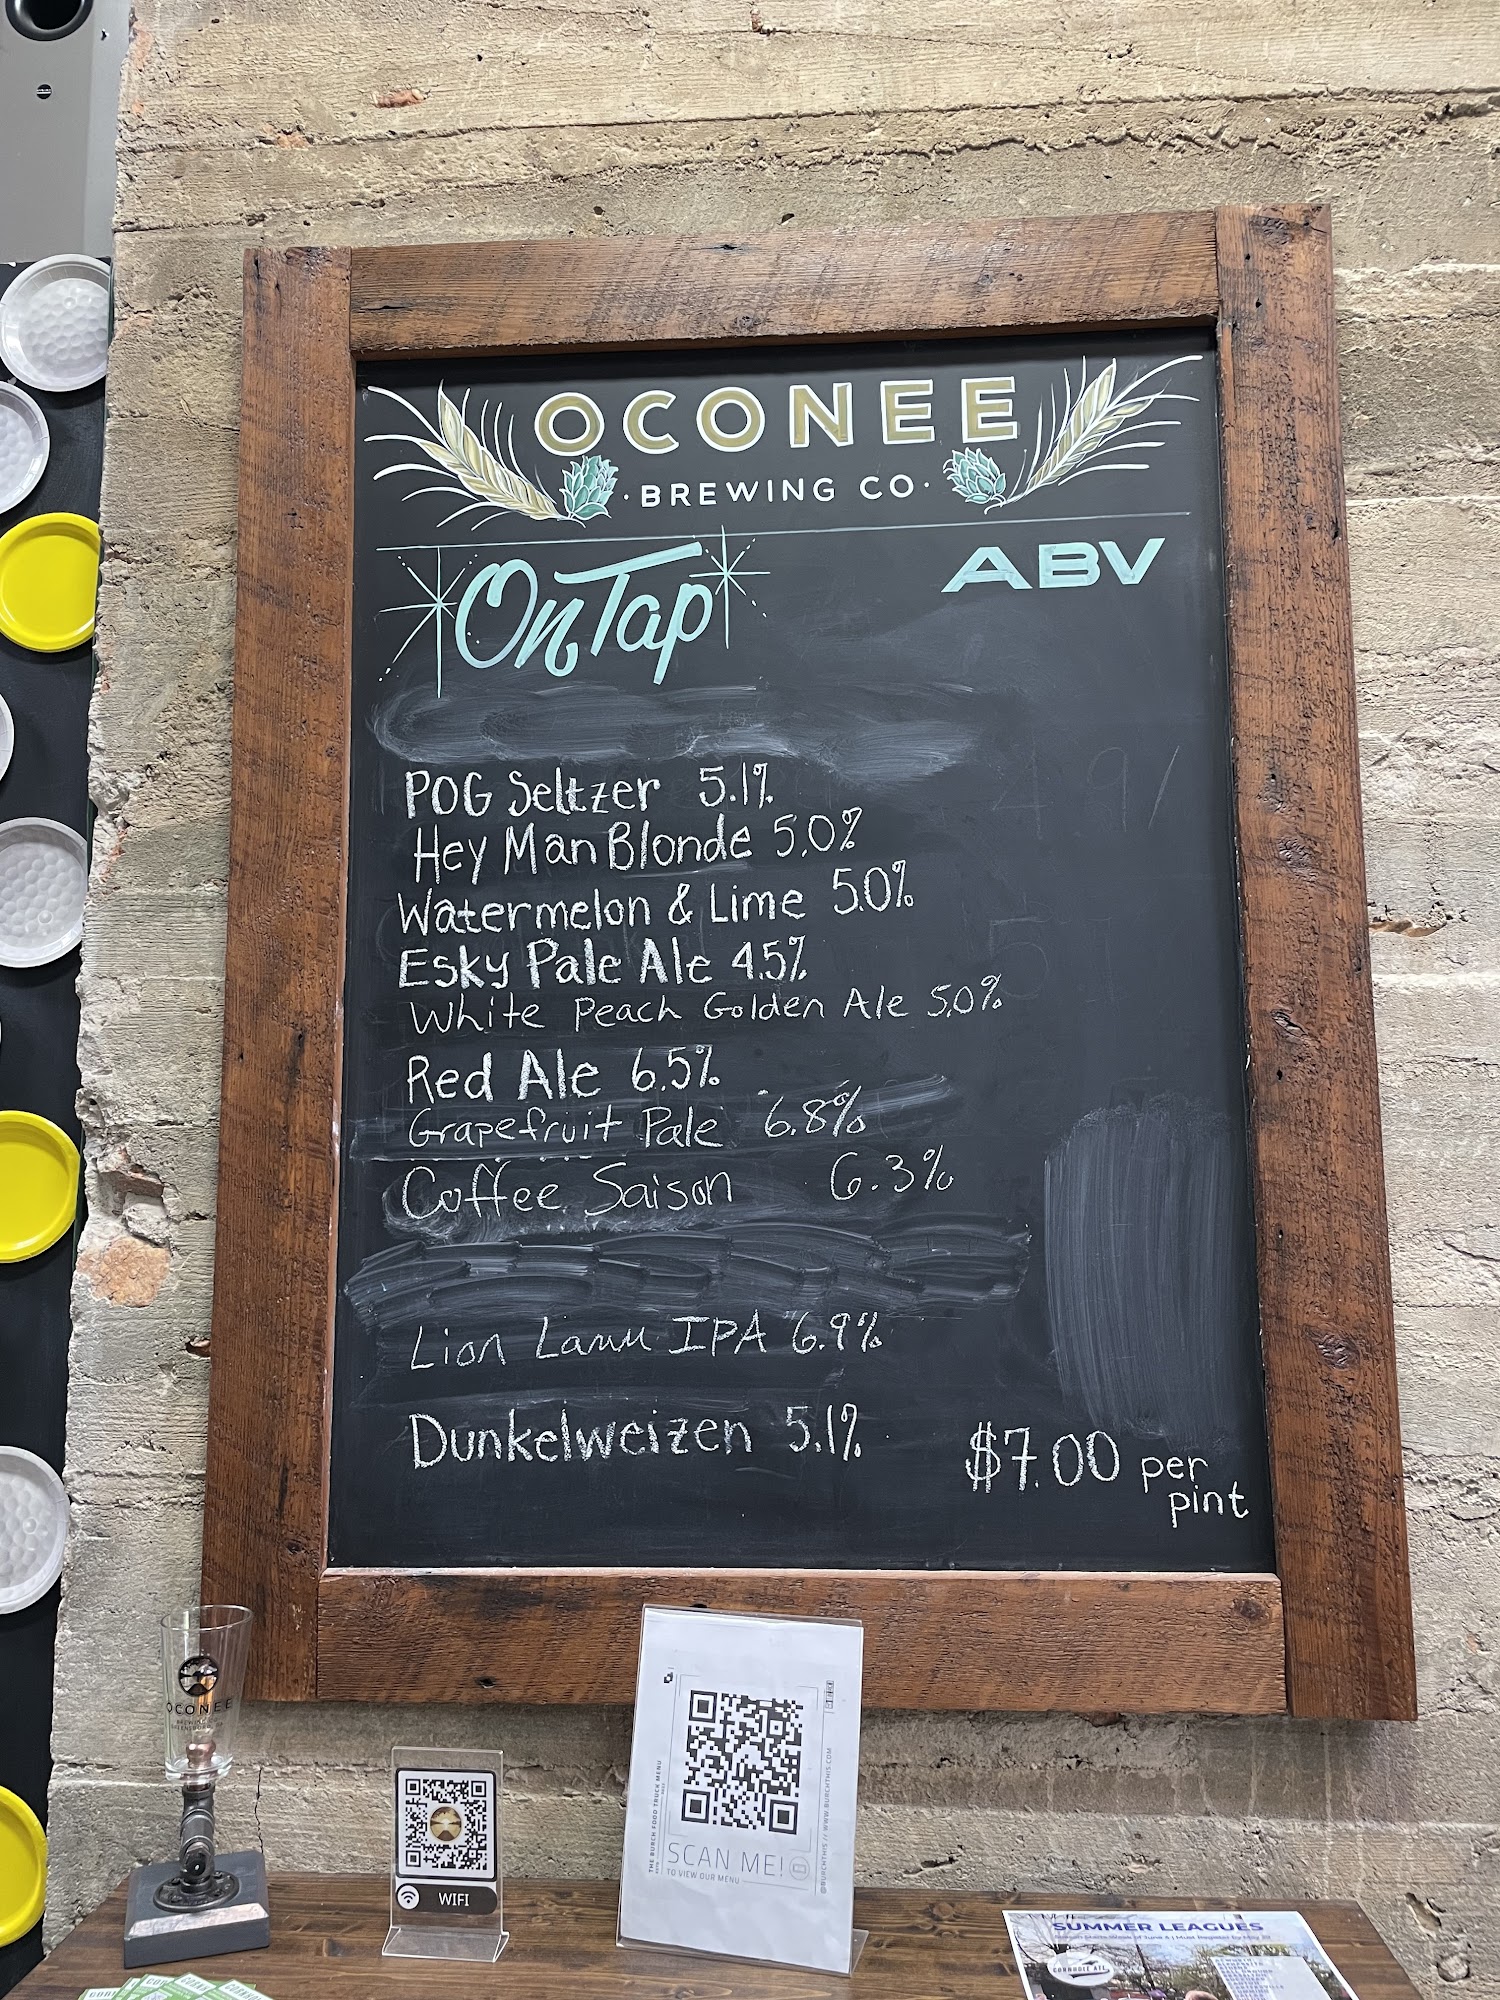 OCONEE
· BREWING CO ·
On Tap
ABV
POG Seltzer 5.1%
Hey Man Blonde 5.0%
Watermelon & Lime 5.0%
Esky Pale Ale 4.5%
White Peach Golden Ale 5.0%
Red Ale 6.5%
Grapefruit Pale 6.8%
Coffee Saison 6.3%
Lion Lamm IPA 6.9%
Dunkelweizen 5.1%
$7.00 per
pint
OCONEE
WIFI
THE BURCH FOOD TRUCK MENU
@BURCHTHIS // WWW.BURCHTHIS.COM
SCAN ME!
TO VIEW OUR MENU
SUMMER LEAGUES
CORNHOLE ATL